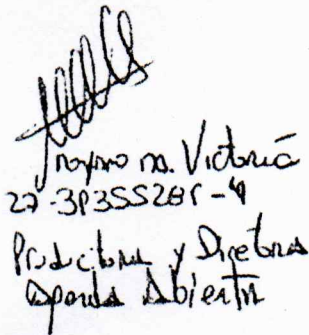 Ma. Victoria
27-39355281-4
Productora y Directora
Agenda Abierta